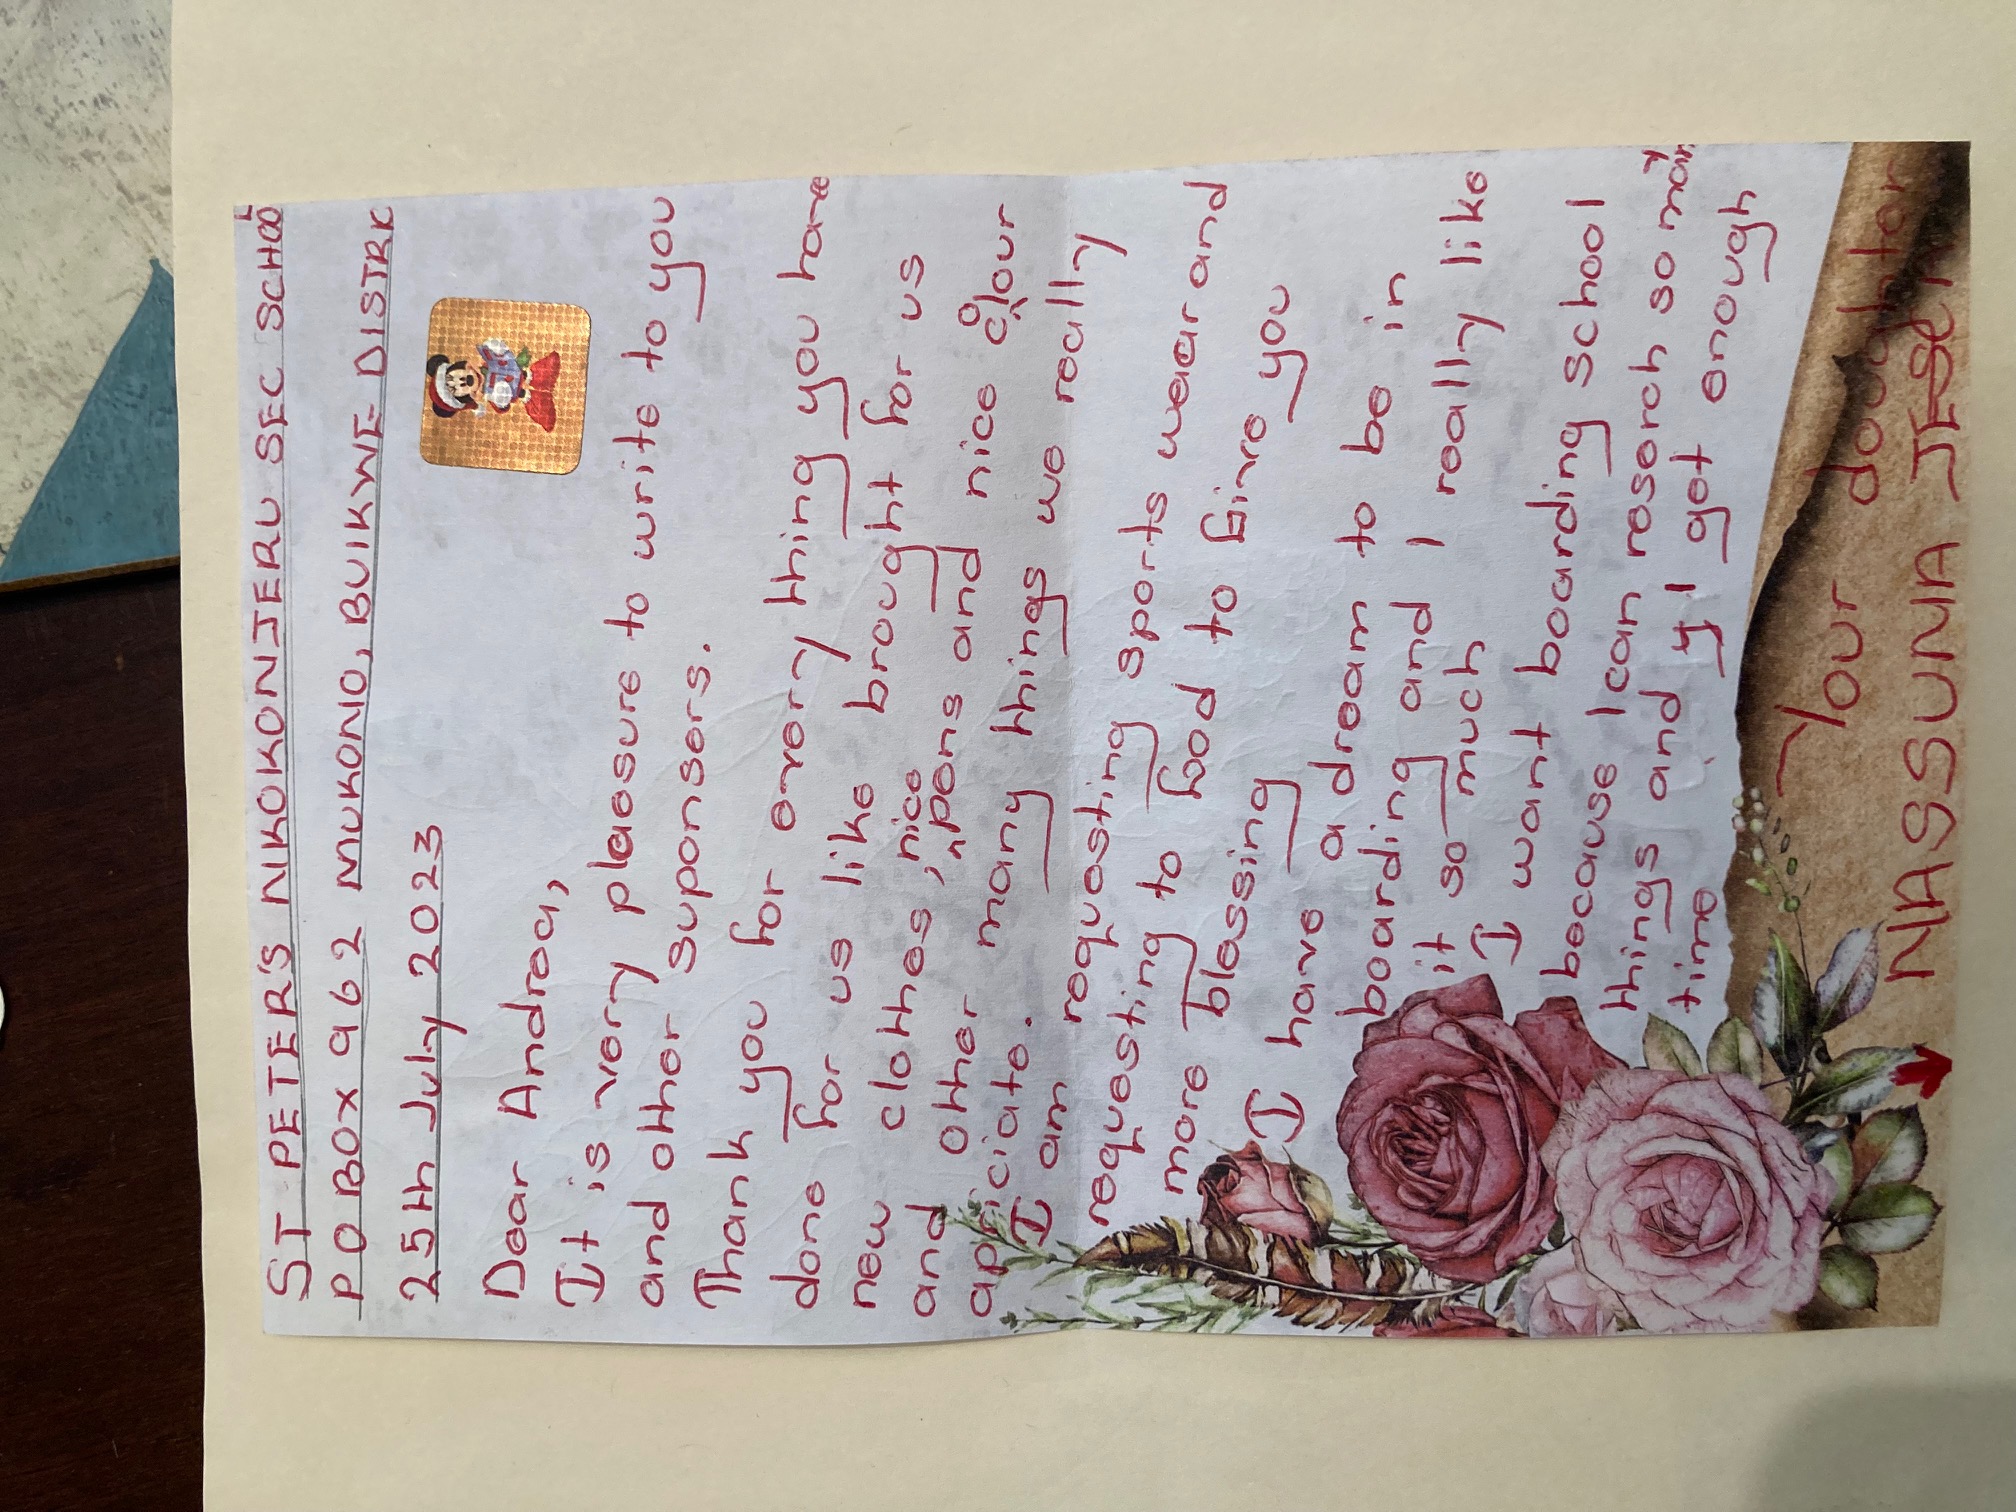 ST PETER'S NIKOKONJERU SEC SCHOOL
P O BOX 962 MUKONO, BUIKWE DISTRIC
25th July 2023
Dear Andrea,
It is very pleasure to write to you
and other suponsers.
Thank you for every thing you have
done for us like brought for us
new clothes, nice pens and nice colour
and other many things we really
apriciate.
I am requesting sports wear and
requesting to God to Give you
more blessing
I have a dream to be in
boarding and I really like
it so much
I want boarding school
because I can reserch so many
things and if I get enough
time
Your doughter
NASSUNA